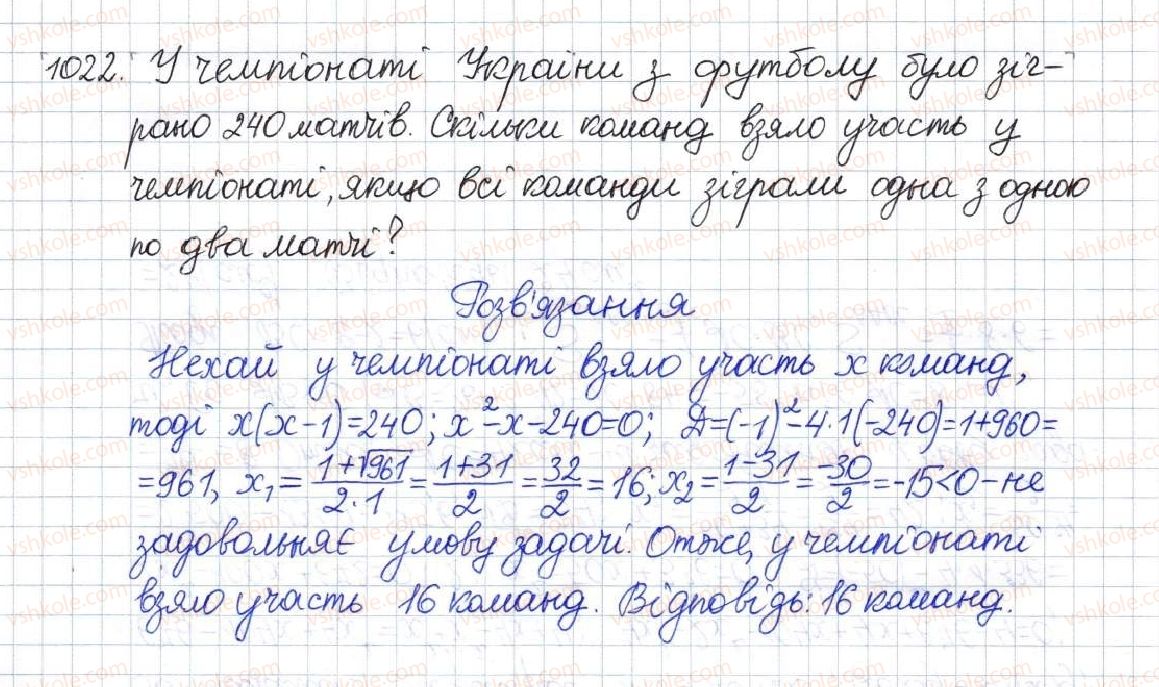 1022. У чемпіонаті України з футболу було зіг-
рано 240 матчів. Скільки команд взяло участь у
чемпіонаті, якщо всі команди зіграли одна з одною
по два матчі?
Розв'язання
Нехай у чемпіонаті взяло участь x команд,
тоді x(x-1)=240; x²-x-240=0; Д=(-1)²-4·1(-240)=1+960=
=961, x₁=(1+√961)/(2·1)=(1+31)/2=32/2=16; x₂=(1-31)/2=-30/2=-15<0-не
задовольняє умову задачі. Отже, у чемпіонаті
взяло участь 16 команд. Відповідь: 16 команд.